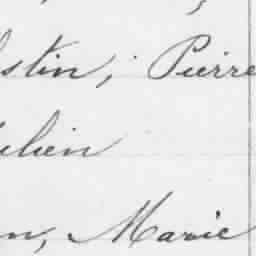 stin, Pierre
ulien
n, Marie